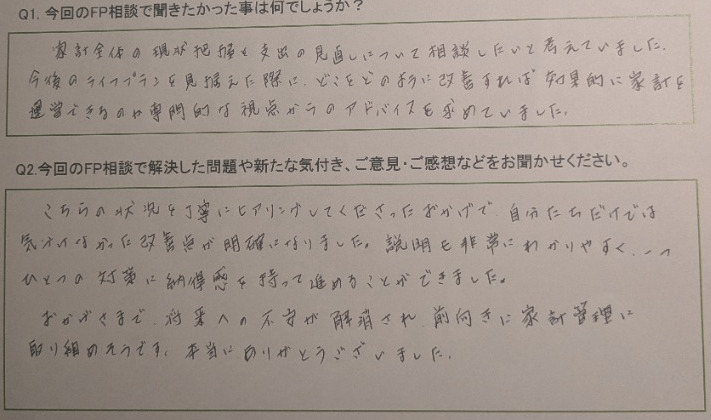 Q1. 今回のFP相談で聞きたかった事は何でしょうか？
家計全体の現状把握と支出の見直しについて相談したいと考えていました。
今後のライフプランを見据えた際に、どこをどのように改善すれば効果的に家計を
運営できるのか専門的な視点からのアドバイスを求めていました。
Q2.今回のFP相談で解決した問題や新たな気付き、ご意見・ご感想などをお聞かせください。
こちらの状況を丁寧にヒアリングしてくださったおかげで、自分たちだけでは
気付けなかった改善点が明確になりました。説明も非常にわかりやすく、一つ
ひとつの対策に納得感を持って進めることができました。
おかげさまで、将来への不安が解消され、前向きに家計管理に
取り組めそうです。本当にありがとうございました。